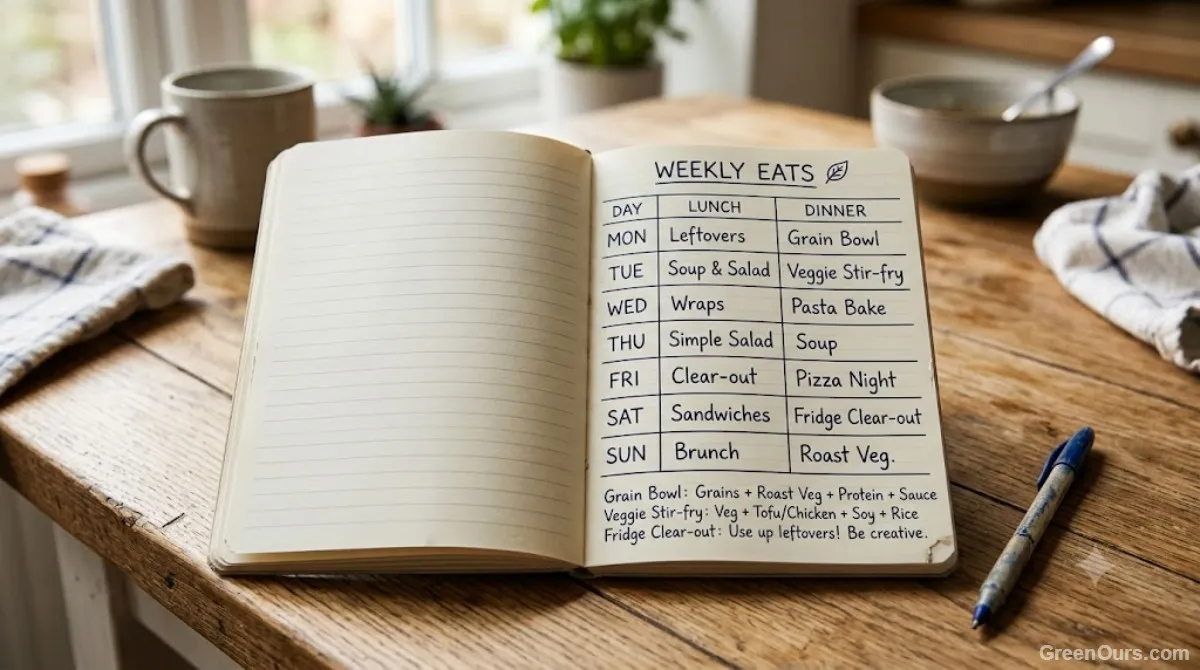 WEEKLY EATS
DAY LUNCH DINNER
MON Leftovers Grain Bowl
TUE Soup & Salad Veggie Stir-fry
WED Wraps Pasta Bake
THU Simple Salad Soup
FRI Clear-out Pizza Night
SAT Sandwiches Fridge Clear-out
SUN Brunch Roast Veg.
Grain Bowl: Grains + Roast Veg + Protein + Sauce
Veggie Stir-fry: Veg + Tofu/Chicken + Soy + Rice
Fridge Clear-out: Use up leftovers! Be creative.
GreenOurs.com